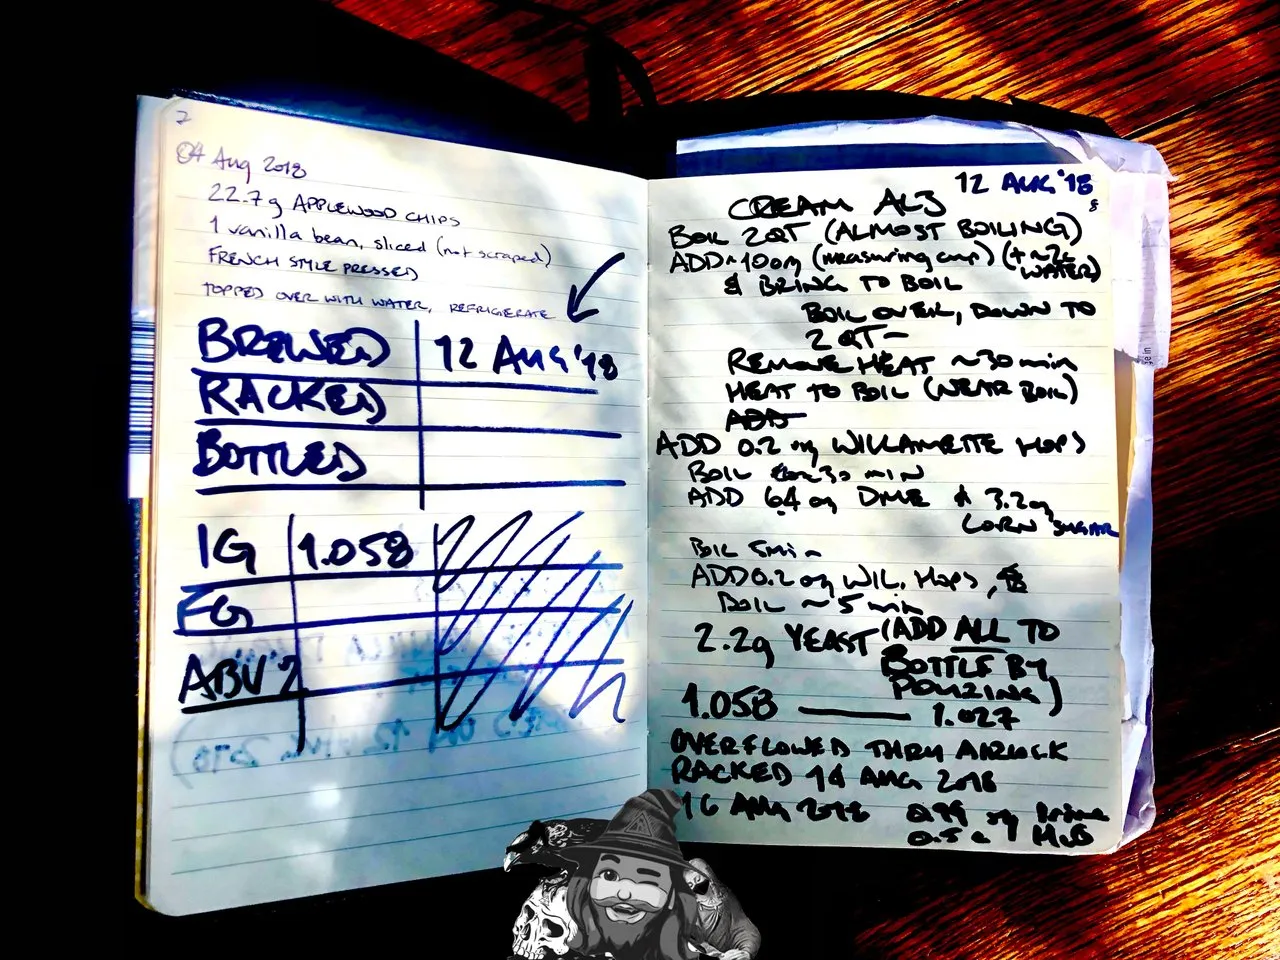 7
04 Aug 2018
22.7g APPLEWOOD CHIPS
1 vanilla bean, sliced (not scraped)
FRENCH STYLE PRESSED
TOPPED OVER WITH WATER, REFRIGERATE
BREWED 12 AUG '18
RACKED
BOTTLED
IG 1.058
FG
ABV
12 AUG '18
CREAM ALE
BOIL 2QT (ALMOST BOILING)
ADD ~10 oz (measuring cup) (+ ~2c
WATER)
& BRING TO BOIL
BOIL OVER, DOWN TO
2 QT-
REMOVE HEAT ~30 min
HEAT TO BOIL (NEAR BOIL)
ADD
ADD 0.2 oz WILLAMETTE HOPS
BOIL 30 min
ADD 6.4 oz DME & 3.2 oz
CORN SUGAR
BOIL 5min
ADD 0.2 oz WIL. HOPS, &
BOIL ~5 min
2.2g YEAST (ADD ALL TO
BOTTLE BY
POURING)
1.058 — 1.027
OVERFLOWED THRU AIRLOCK
RACKED 14 AUG 2018
16 AUG 2018 0.99 oz
0.5